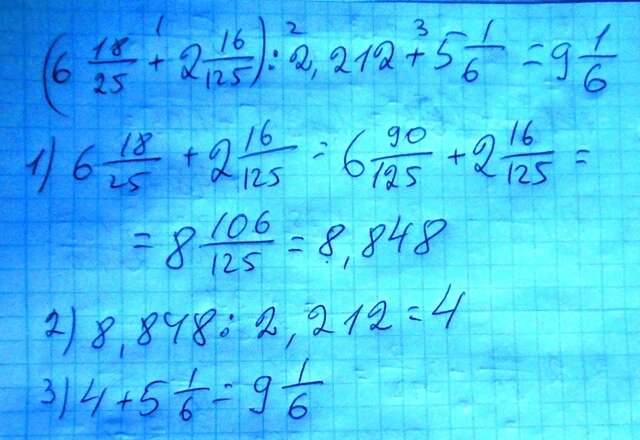 (6 18/25 + 2 16/125) : 2,212 + 5 1/6 = 9 1/6
1 2 3
1) 6 18/25 + 2 16/125 = 6 90/125 + 2 16/125 =
= 8 106/125 = 8,848
2) 8,848 : 2,212 = 4
3) 4 + 5 1/6 = 9 1/6